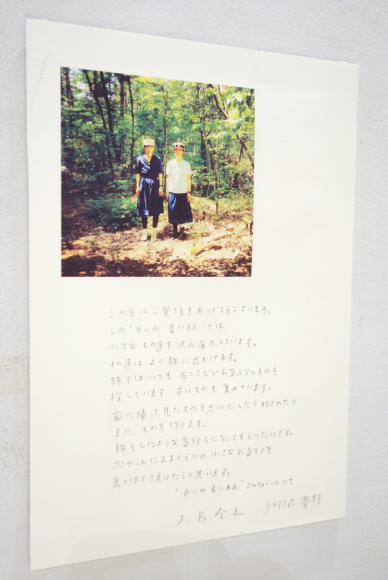 この度はご覧頂きありがとうございます。
この"白い山 青い林"では
小さなものを沢山展示しています。
私達はよく旅に出かけます。
旅ではいつも 石ころなどお気に入りのものを
探しています。古いものも集めています。
家に帰って見たものを思いだしたり眺めたり
また、ものを作ります。
旅をしたような気持ちになってもらいたいです。
ポケットに入るくらいの小さなお気に入りを
見つけて頂けたらと思います。
"白い山 青い林" にて
大島奈